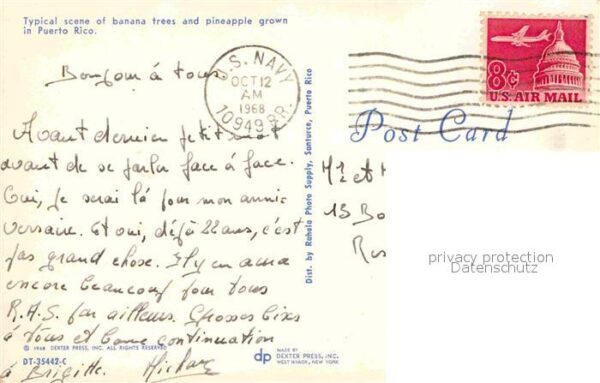 Typical scene of banana trees and pineapple grown
in Puerto Rico.
Bonjour à tous
Avant dernier petit mot
avant de se parler face à face.
Oui, je serai là pour mon annie
versaire. Et oui, déjà 22 ans, c'est
pas grand chose. Il y en aura
encore beaucoup pour tous
R.A.S. par ailleurs. Grosses bises
à tous et bonne continuation
à Brigitte.
© 1968 DEXTER PRESS, INC. ALL RIGHTS RESERVED
DT-35442-C
Dist. by Rahola Photo Supply, Santurce, Puerto Rico
dp
MADE BY
DEXTER PRESS, INC.
WEST NYACK, NEW YORK
U.S. NAVY
OCT 12
AM
1968
10949 BR.
8c
U.S. AIR MAIL
Post Card
Mr et
13 Bo
privacy protection
Datenschutz